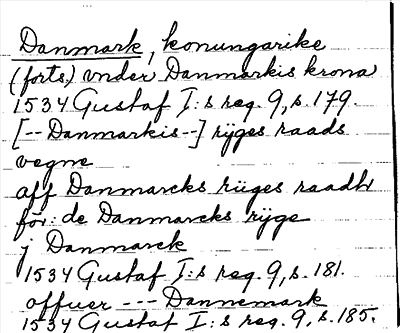 Danmark, konungarike
(forts.) vnder Danmarkis krona
1534 Gustaf I:s reg. 9, s. 179.
[--Danmarkis--] rÿges raads
vegne
aff Danmarcks rüges raadh
för: de Danmarcks rÿge
j Danmarck
1534 Gustaf I:s reg. 9, s. 181.
offuer --- Dannemark
1534 Gustaf I:s reg. 9, s. 185.